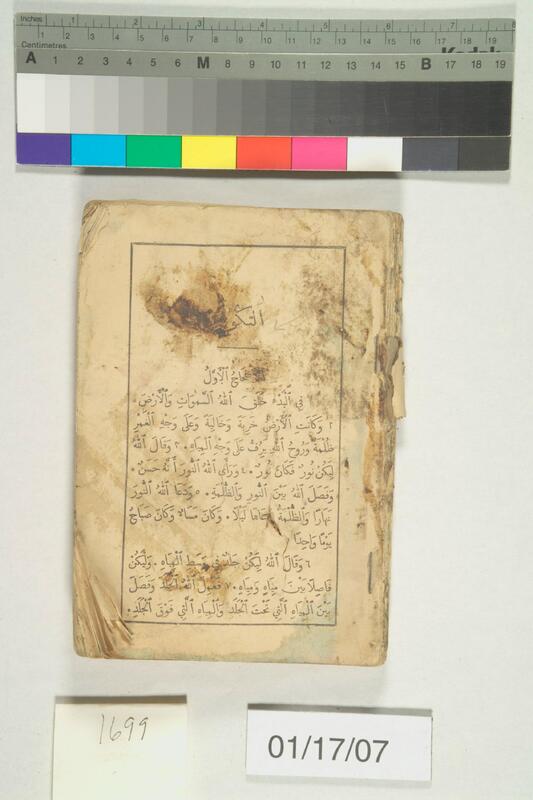 Inches 1 2 3 4 5 6 7 8
Centimetres 1 2 3 4 5 6 7 8 9 10 11 12 13 14 15 16 17 18 19
Kodak
A 1 2 3 4 5 6 M 8 9 10 11 12 13 14 15 B 17 18 19
الأَوَّلُ
فِي ٱلْبَدْءِ خَلَقَ ٱللهُ ٱلسَّمٰوَاتِ وَٱلْأَرْضَ.
٢ وَكَانَتِ ٱلْأَرْضُ خَرِبَةً وَخَالِيَةً وَعَلَى وَجْهِ ٱلْغَمْرِ
ظُلْمَةٌ وَرُوحُ ٱللهِ يَرِفُّ عَلَى وَجْهِ ٱلْمِيَاهِ. ٣ وَقَالَ ٱللهُ
لِيَكُنْ نُورٌ فَكَانَ نُورٌ. ٤ وَرَأَى ٱللهُ ٱلنُّورَ أَنَّهُ حَسَنٌ.
وَفَصَلَ ٱللهُ بَيْنَ ٱلنُّورِ وَٱلظُّلْمَةِ. ٥ وَدَعَا ٱللهُ ٱلنُّورَ
نَهَارًا وَٱلظُّلْمَةُ دَعَاهَا لَيْلًا. وَكَانَ مَسَاءٌ وَكَانَ صَبَاحٌ
يَوْمًا وَاحِدًا
٦ وَقَالَ ٱللهُ لِيَكُنْ جَلَدٌ فِي وَسَطِ ٱلْمِيَاهِ. وَلْيَكُنْ
فَاصِلًا بَيْنَ مِيَاهٍ وَمِيَاهٍ. ٧ فَعَمِلَ ٱللهُ ٱلْجَلَدَ وَفَصَلَ
بَيْنَ ٱلْمِيَاهِ ٱلَّتِي تَحْتَ ٱلْجَلَدِ وَٱلْمِيَاهِ ٱلَّتِي فَوْقَ ٱلْجَلَدِ.
1699
01/17/07